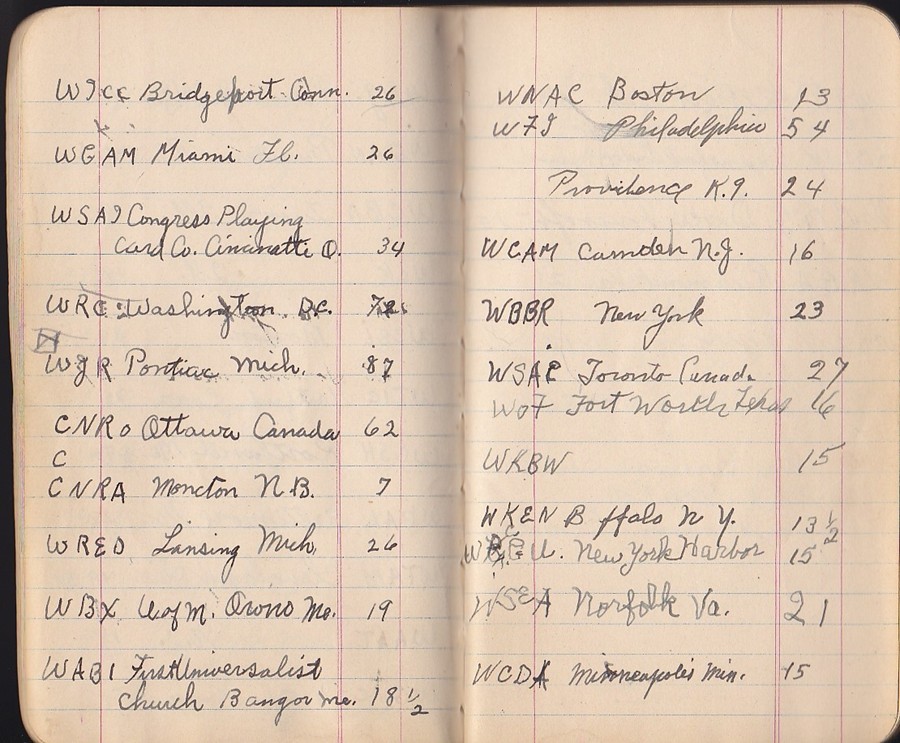 WICC Bridgeport Conn. 26
WGAM Miami Fl. 26
WSAI Congress Playing
Card Co. Cincinatti O. 34
WRC Washington D.C.
WJR Pontiac Mich. 87
CNRO Ottawa Canada 62
C
CNRA Moncton N.B. 7
WRED Lansing Mich. 26
WBX U of M. Orono Me. 19
WABI First Universalist
Church Bangor me. 18 1/2
WNAC Boston 13
WFI Philadelphia 54
Providence R.I. 24
WCAM Camden N.J. 16
WBBR New York 23
Toronto Canada 27
Fort Worth Texas 16
WKBW 15
WKEN B ffalo N Y. 13 1/2
New York Harbor 15
WSEA Norfolk Va. 21
WCDA Minneapolis Min. 15